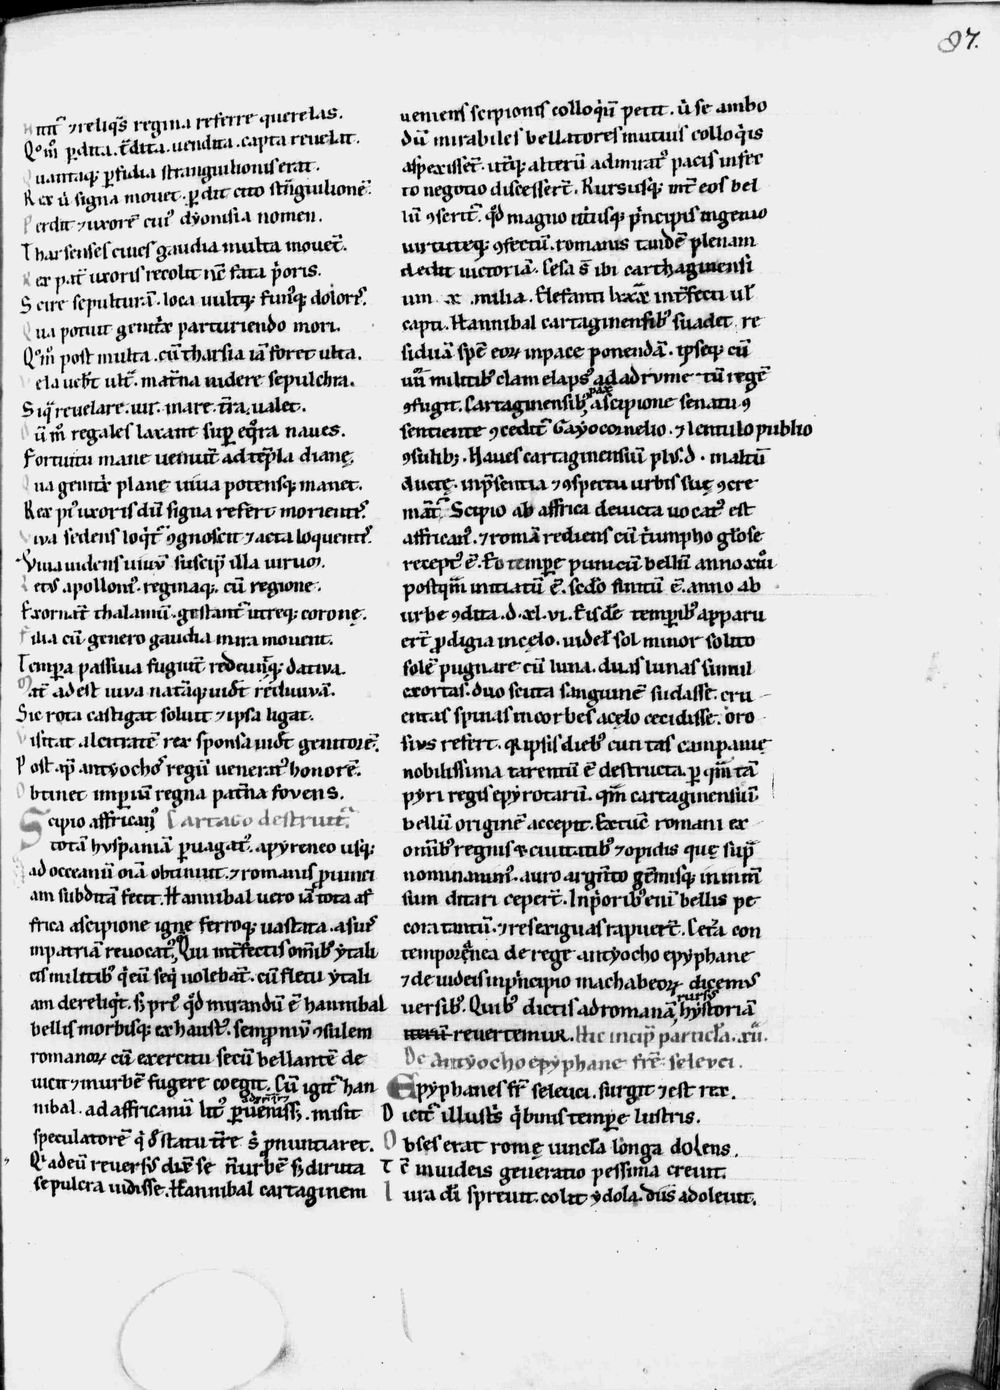 87.
Nitit᷑ ⁊ reliq̅s regina referre querelas.
Qͦm̅ ꝑdita. t᷑dita. uendita. capta reuelat.
Quantaq; ꝑfidia stranguilionis erat.
Rex u̇ signa mouet. ꝑdit cito st᷑nguilione᷑.
Perdit ⁊ uxore̅ cui᷒ dyonisia nomen.
Tharsenses ciues gaudia multa mouet̅.
Rex pat̅ uxoris recolit nc̅ fata p̍oris.
Scire sepultura̅. loca uultq; fun᷒q; dolore᷒.
Qua potuit genit᷑x parturiendo mori.
Qͦm̅ post multa. cu̅ tharsia ia̅ foret ulta.
Vela ueh᷑t ult᷑. mat̅na uidere sepulchra.
Siq᷑ reuelare. uir. mare. t̅ra. ualet.
Du̅ m̅ regales laxant suꝑ eq̅ra naues.
Fortuitu mane uenit᷑ ad te̅pla diane̜.
Qua genit᷑x plane̜ uiua potensq; manet.
Rex pi᷒ uxoris du̅ signa refert morient᷒.
Viua sedens loq̍t᷑ ꝯgnoscit ⁊ acta loquent᷒.
Viua uidens uiuu̅ suscip̅ illa uirum.
Let᷒ apolloni᷒. reginaq;. cu̅ regione.
Exornat᷑ thalamu̅. gestant᷑ utreq; corone̜.
Filia cu̅ genero gaudia mira mouent.
Temꝑa passiua fugiu̅t redeuntq; datiua.
Mat̅ adest uiua nata̅q; uid᷑t rediuiua̅.
Sic rota castigat soluit ⁊ ipsa ligat.
Visitat alcitrate̅ rex sponsa uid᷑t genitore᷑.
Post ap̅ antyocho᷒ regu̅ uenerat᷒ honore̅.
Obtinet imꝑiu̅ regna pat̅na fovens.
Scipio affrican᷒ Cartago destruit᷑.
tota̅ hyspania̅ ꝑuagat᷒. apyreneo usq;
ad occeanu̅ oi̅a obtinuit. ⁊ romanis ꝓuinci
am subdita̅ fecit. Hannibal uero ia̅ tota af
frica ascipione igne̜ ferroq; uastata. asuis
inpatria̅ reuocat᷒. Qui int᷑fectis om̅ib᷒ ytali
cis militib᷒ q̍ eu̅ seq̍ nolebat̅. cu̅ fletu ytali
am dereliq̍t. s; pri᷒ q̊d mirandu̅ e̅ hannibal
bellis morbisq; exhaust᷒. semproniu̅ ꝯsulem
romanoꝝ cu̅ exercitu secu̅ bellante̅ de
uicit ⁊ inurbe̅ fugere coegit. Cu̅ igit᷑ han
nibal. ad affricanu̅ lit᷒ ꝑueniss;. misit
speculatore̅ q̍ d̅ statu t̅re s̍ ꝓnuntiaret.
Qi adeu̅ reuersus dix̅ se n̅urbe̅ s; diruta
sepulcra uidisse. Hannibal cartaginem
ueniens scipionis colloq̍u̅ petit. u̍ se ambo
du̅ mirabiles bellatores mutuis colloq̍is
aspexissent̅. ut᷑q; alteru̅ admirat᷒ pacis infec
to negotio discessert̅. Rursusq; int᷑ eos bel
lu̅ ꝯserit᷑. q̊d magno ut᷑iusq; p̍ncipis ingenio
uirtuteq; ꝯfectu̅. romanis tande̅ plenam
dedit uictoria̅. Cesa s̅ ibi carthaginensi
um .x. milia. Elefanti lxxx̅ int᷑fecti ul᷑
capti. Hannibal cartaginensib᷒ suadet re
sidua̅ spe̅ eoꝝ inpace ponenda̅. ipseq; cu̅
uñ militib᷒ clam elaps᷒ ad adrume tu̅ rege̅
ꝯfugit. Cartaginensib᷒ pax ascipione senatu ꝯ
sentiente ꝯcedit᷑ Gayo cornelio. ⁊ lentulo publio
ꝯsulib;. Naues cartaginensiu̅ pls̅. d. inaltu̅
ducte̜. inp̅sentia ⁊ ꝯspectu urbis sue̜ ꝯcre
mat̅. Scipio ab affrica deuicta uocat᷒ est
affrican᷒. ⁊ roma̅ rediens cu̅ t̍umpho gl̅ose
recept᷒ e̅. Eo tempe̅ punicu̅ bellu̅ anno xuii
postqm̅ initiatu̅ e̅. sedo̅ finitu̅ e̅. anno ab
urbe ꝯdita. d. xl. vi. Eisde̅ temꝑib᷒ apparu
ert̅ ꝓdigia incelo. uidel᷑ sol minor solito
sole̅ pugnare cu̅ luna. duas lunas simul
exortas. duo scuta sanguine̅ sudasse. cru
entas spinas incorbes ace̜lo cecidisse. oro
sius refert. qi ipsis dieb᷒ cuntas campanie̜
nobilissima tarentu̅ e̅ destructa. ꝑ qm̅ ta̅
pyri regis epyrotaru̅. qm̅ cartaginensiu̅
bellu̅ origine̅ accepit. Extuc̅ romani ex
om̅ib᷒ regnis & ciuitatib᷒ ⁊ opidis que̜ sup᷑
nominauim᷒. auro arge̅to ge̅misq; inm̅m
sum ditari cepert̅. Inp̍orib᷒ eni̅ bellis pe
cora tantu̅. ⁊ res exiguas rapuert̅. Cet̅a con
temporanea de rege antyocho epyphane
⁊ de iudeis inp̍ncipio machabeoꝝ dicemus
uersib᷒. Quib᷒ dictis ad romana̅ rursus hystoria̅
reuertemur. Hic incip̅ particl᷑a. xii.
De antyocho epyphane fr̅e seleuci.
Epyphanes fr̅ seleuci. surgit ⁊ est rex.
Dicit᷑ illustr̍s q̍ binis tempe̅ lustris.
Obses erat rome̜ uincl᷑a longa dolens.
Te̅ inuideis generatio pessima creuit.
Iura di̅ spreuit. colit ydola. du̅s adoleuit.